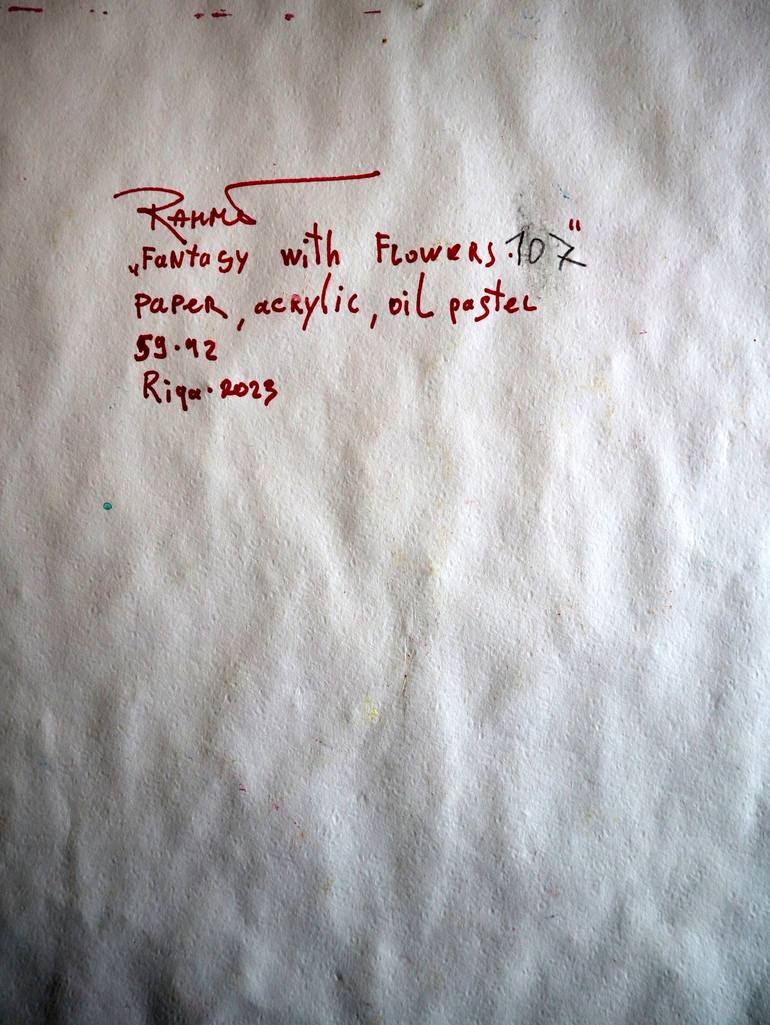 „Fantasy with Flowers·107“
paper, acrylic, oil pastel
59·42
Riga·2023